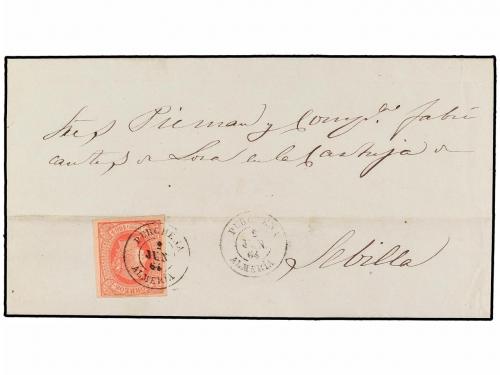 Sres Picman y Comp.ª fabri
cantes de Losa en la Cartuja de
Sebilla
PURCHENA
2
JUN
64
ALMERIA
PURCHENA
2
JUN
64
ALMERIA
CORREOS